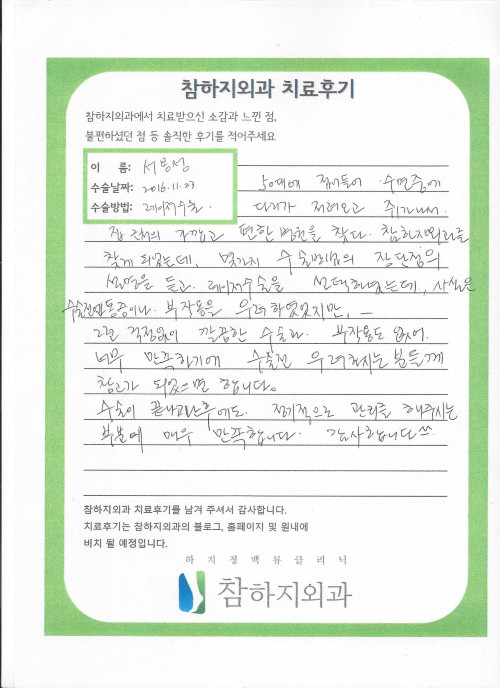 참하지외과 치료후기
참하지외과에서 치료받으신 소감과 느낀 점,
불편하셨던 점 등 솔직한 후기를 적어주세요
이 름:
수술날짜: 2016.11.23
수술방법: 레이저수술.
50대에 접어들어 수면중에
다리가 저려오고 쥐가나서.
집 근처의 가깝고 편한 병원을 찾다. 참하지외과를
찾게 되었는데, 몇가지 수술방법의 장단점의
설명을 듣고. 레이저수술을 선택하였는데, 사실은
수술전엔 통증이나. 부작용을 우려하였었지만, —
그런 걱정없이 깔끔한 수술과. 부작용도 없어.
너무 만족하기에 수술전 우려하시는 분들께
참고가 되었으면 합니다.
수술이 끝나고난후에도. 정기적으로 관리를 해주시는
부분에 매우 만족합니다. 감사합니다
참하지외과 치료후기를 남겨 주셔서 감사합니다.
치료후기는 참하지외과의 블로그, 홈페이지 및 원내에
비치 될 예정입니다.
하지정맥류클리닉
참하지외과